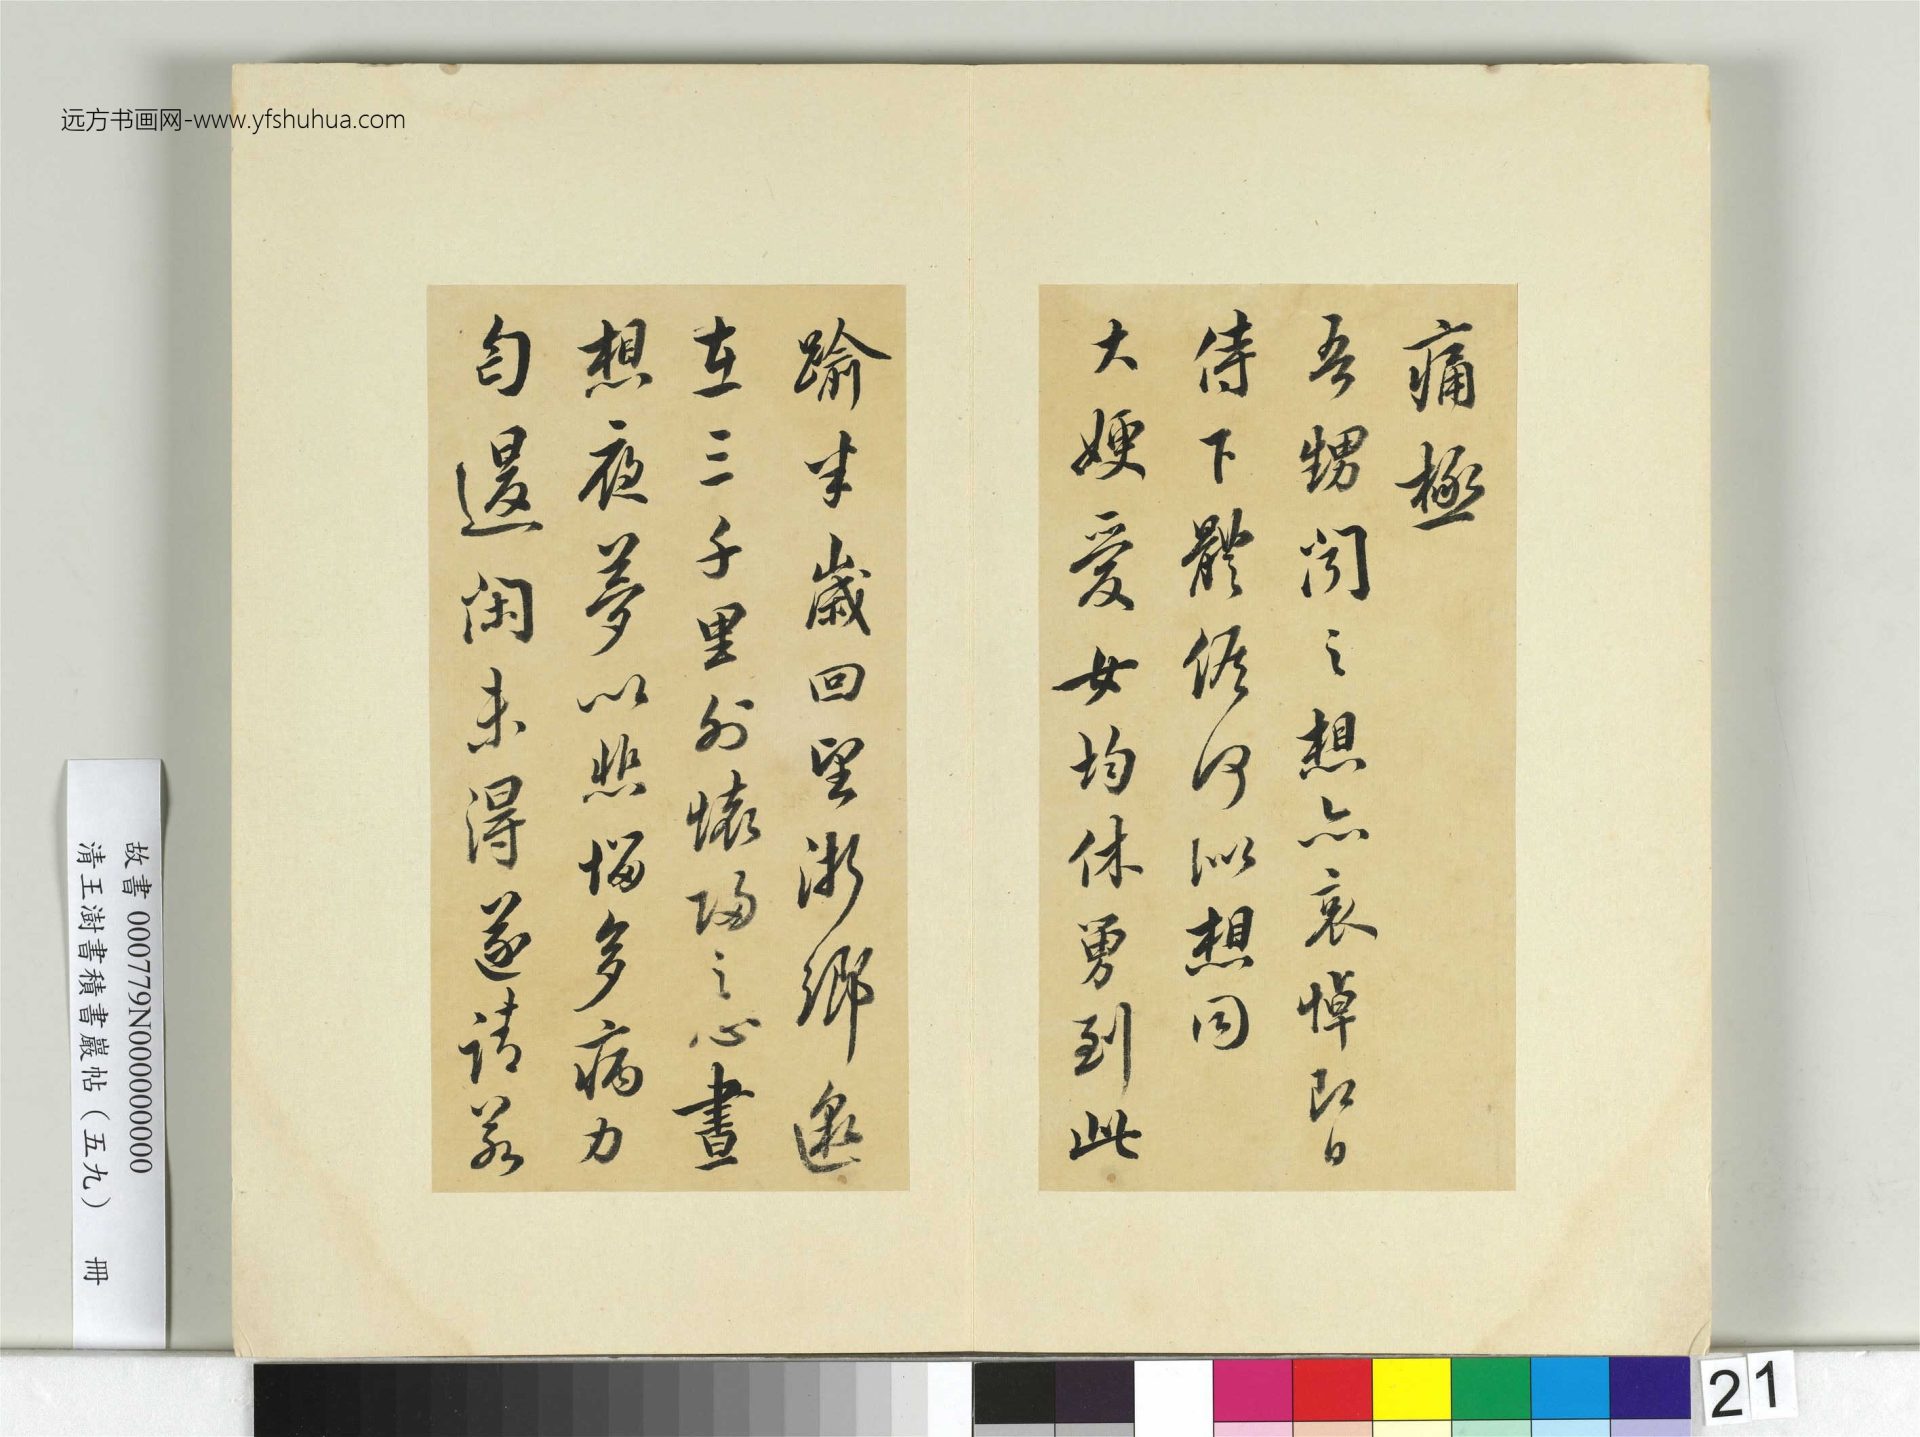 远方书画网-www.yfshuhua.com
痛極
吾甥聞之想亦哀悼即日
侍下體候何似想同
大嫂愛女均休舅到此
踰半歲回望浙鄉邈
在三千里外懷歸之心晝
想夜夢以悲惱多病力
匄退閑未得遂請若
故書 000779N000000000
清王澍書積書巖帖(五九) 冊
21